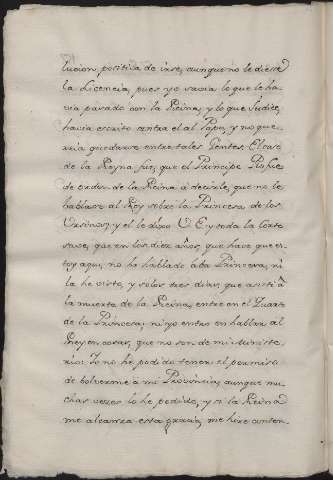 lucion positiva de irse, aunque no le diese
la Licencia, pues yo savia lo que le ha-
via pasado con la Reina, y lo que Judice,
havia escrito contra el al Papa, y no que-
ria quedarse entre tales Gentes El caso
de la Reyna fue, que el Principe Pio fue
de orden de la Reina a decirle, que no le
hablase al Rey sobre la Princesa de los
Ursinos, y el le dixo V. E. y toda la Corte
save, que en los diez años, que hace que es-
toy aqui, no he hablado a la Princesa, ni
la he visto, y solos tres dias, que asisti a
la muerte de la Reina, entre en el Quarto
de la Princesa, ni yo entro en hablar al
Rey en cosas, que no son de mi Ministe-
rio: Io no he podido tener el permiso
de bolverme a mi Provincia, aunque mu-
chas vezes lo he pedido, y si la Reina
me alcanza esta gracia, me hara